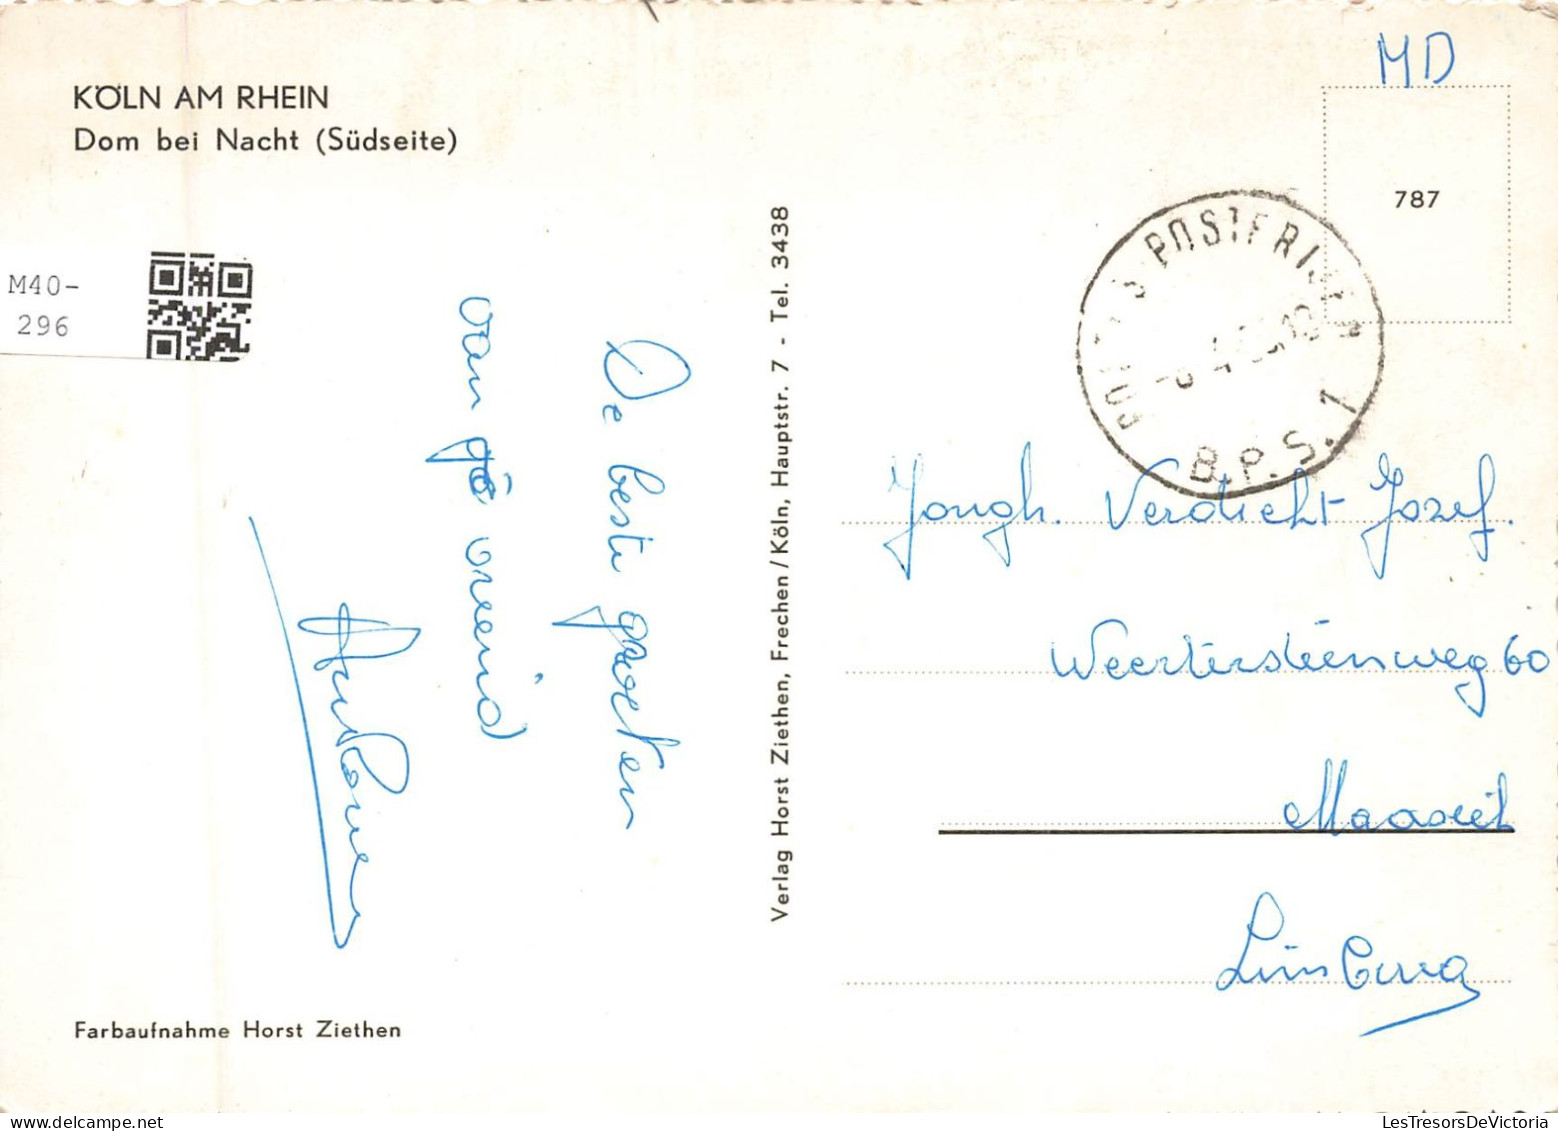 KÖLN AM RHEIN
Dom bei Nacht (Südseite)
M40-
296
De beste groeten
van je vriend
Farbaufnahme Horst Ziethen
Verlag Horst Ziethen, Frechen/Köln, Hauptstr. 7 - Tel. 3438
MD
787
POSTFRIJ
B.P.S. 1
Jongh. Verdicht Jozef.
Weertersteenweg 60
Maaseik
Limburg
LesTresorsDeVictoria